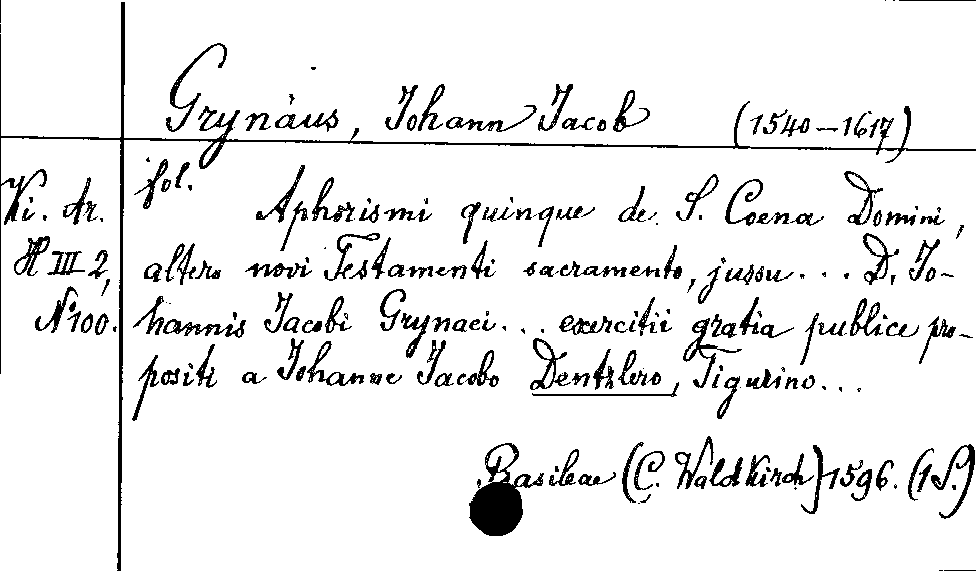 Grynäus, Johann Jacob (1540-1617)
fol.
Ki. Ar.
H III 2,
No 100.
Aphorismi quinque de S. Coena Domini,
altero novi Testamenti sacramento, jussu... D. Jo-
hannis Jacobi Grynaei... exercitii gratia publice pro-
positi a Johanne Jacobo Dentzlero, Tigurino...
Basileae (C. Waldkirch) 1596. (1 S.)